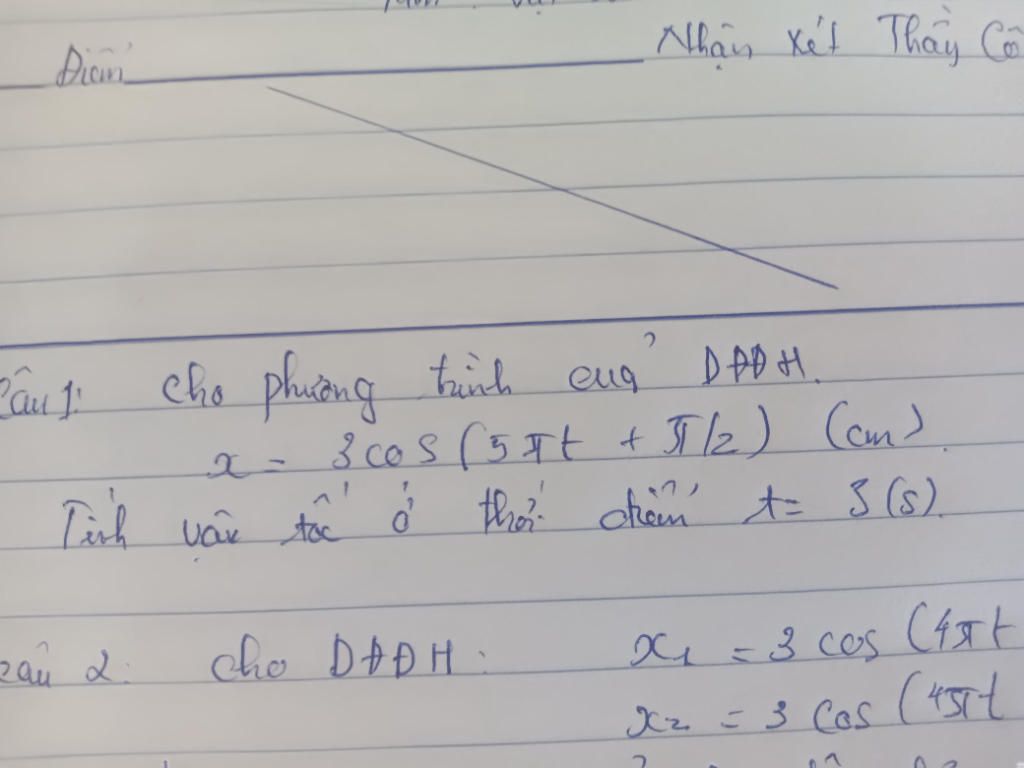 Điểm
Nhận xét Thầy Cô
Câu 1: Cho phương trình của DĐĐH.
x = 3cos (5πt + π/2) (cm)
Tính vận tốc ở thời điểm t = 3 (s).
Câu 2: Cho DĐĐH: x₁ = 3 cos (4πt
x₂ = 3 cos (4πt